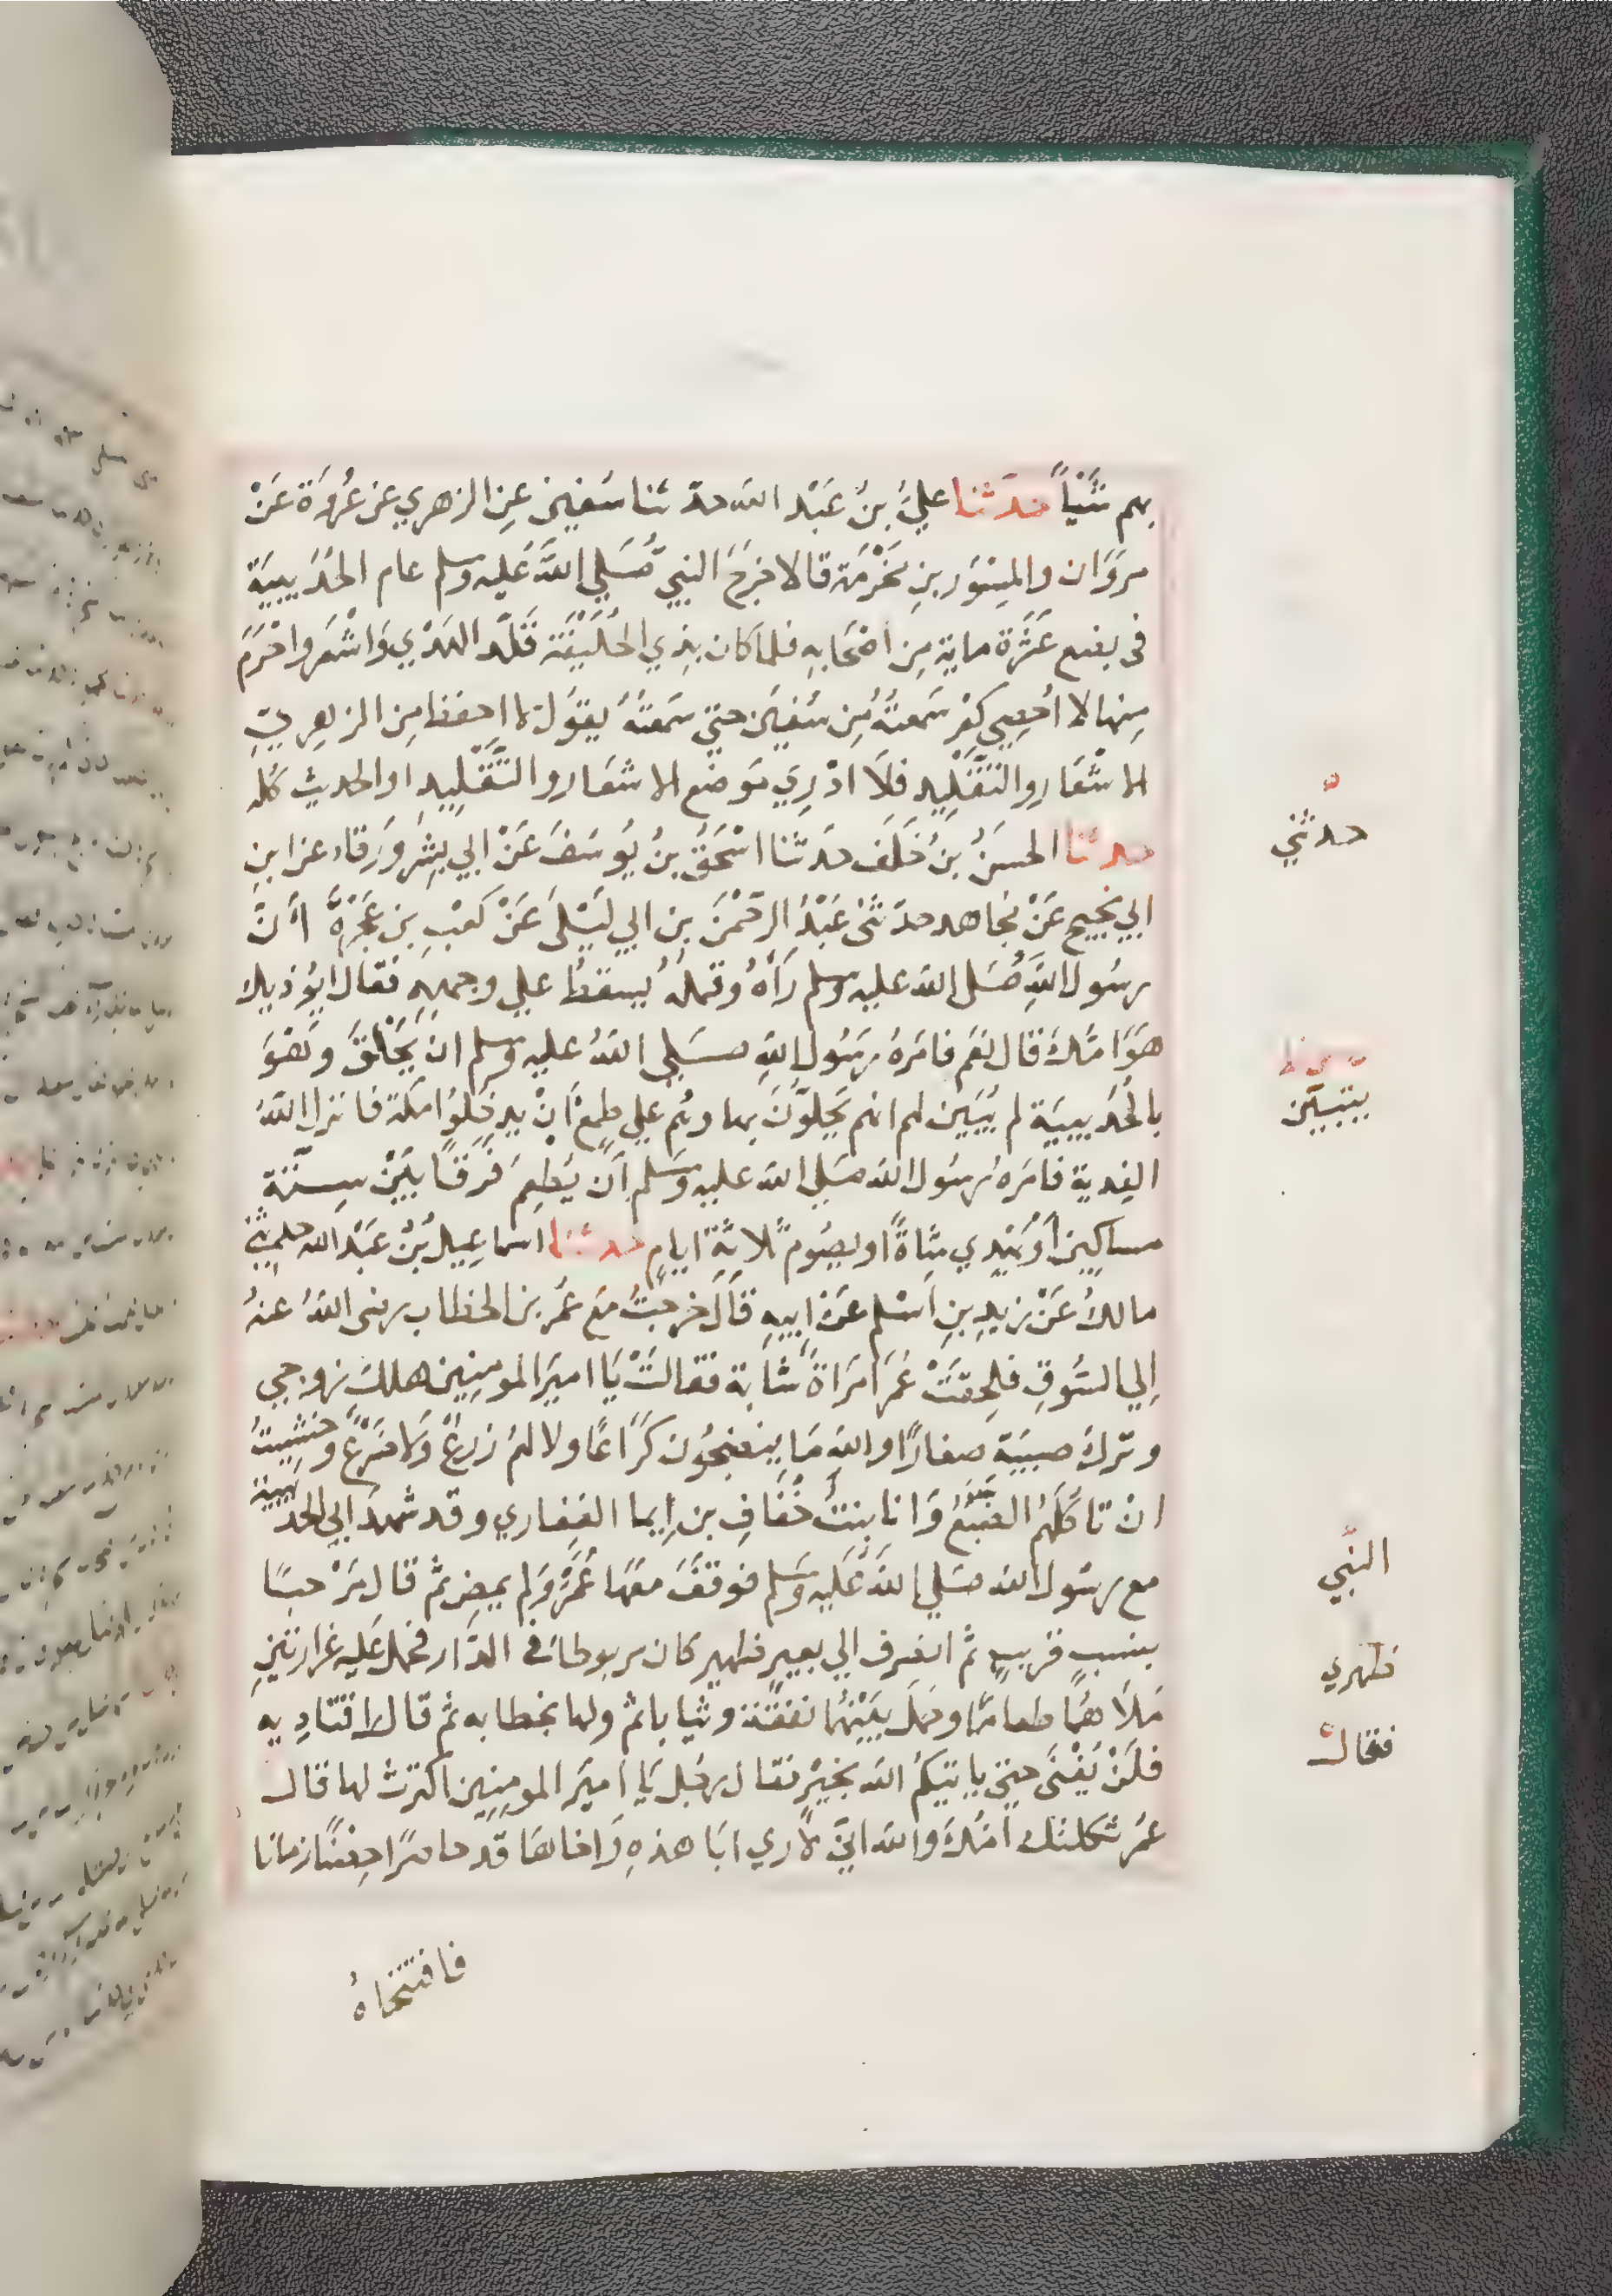 بهم شَيْئًا حَدَثنا عليُّ بنُ عَبْد الله حدثنا سُفين عنِ الزهري عن عُروَة عَنْ
مروَان والمِسْوَر بنِ مَخْرَمَة قالا خرَجَ النبيّ صَلي اللهُ عَليه وسلم عام الحُدَيبِيَة
في بضع عَشَرَة ماية مِن اصْحَابِهِ فلما كان بِذي الحُلَيْفَة قَلَّد الهَدْي وَاشْعَر واحْرَمَ
مِنها لا اُحْصِي كمْ سَمعتُهُ مِن سُفينَ حتي سَمعتُهُ يقوُل لا احفظ مِن الزهرِيِّ
الاشْعَار والتَّقْلِيد فلَا ادْرِي مَوضع الاشعَار والتَّقْلِيدِ او الحديث كُلّه
حدثنا الحسَنُ بنُ خَلَف حَدثنا اسْحَقُ بنُ يوُسَفَ عَنْ ابي بِشرٍ وَرَقاء عن ابنِ
ابي نجيح عَنْ مُجاهد حدثَنى عَبْدُ الرحْمٰن بن ابي ليْلَى عَنْ كَعْبِ بن عُجْرَةَ اَنَّ
رسُول اللَّهِ صَلي الله عليه وسلم رَآهُ وقملُهُ يَسقطُ علي وجههِ فَقال ايُوذيك
هَوَامُّكَ قال نعَم فامَرهُ رسُول اللهِ صَلي اللهُ عليه وسلم ان يَحْلقَ وَهُوَ
بالحُدَيبِيَة لم يُبَيّن لهم انهم يَحِلوُّنَ بها وهُم علي طمعٍ اَنْ يدخُلوُا مكة فانزل اللهُ
الفِدية فامَرهُ رسُول الله صَلي الله عليه وسَلم اَن يُطعِمَ فَرَقًا بَيْنَ سِتَّة
مساكِين اَوْ يُهْدِي شاةً او يصُوم ثلاثة ايامٍ حدثنا اسماعِيل بْنُ عَبْد الله حدثني
مالكٌ عَنْ زيدِ بنِ اَسْلم عَنْ ابِيهِ قَالَ خرجتُ مَع عُمَر بن الخطاب رضى اللهُ عنهُ
اِلي السُوقِ فلحِقَتْ عُمَرَ امرَاةٌ شَابة فقالتْ يَا اميرَ المومِنِين هلكَ زوجي
وترَكَ صبيَة صغارًا والله مَا ينضِجُون كُرَاعًا ولا لهُم زرعٌ وَلا ضَرْعٌ وخشِيتُ
انْ تاكُلَهُمُ الضبُعُ وَانا بِنتُ خُفَافِ بن اِيما الغِفاري وقد شهدَ ابي الحدَيبِية
مع رسُول الله صَلي اللهُ عَليه وَسَلم فوقَفَ معَهَا عُمَرُ وَلم يمضِ ثم قال مَرْحبًا
بنسبٍ قريبٍ ثم انصَرف الي بعيرٍ ظهيرٍ كان مربوطا في الدَّار فحَمل عَليه غرارتَينِ
مَلَاهُمَا طعامًا وحَمَلَ بَيْنَهُمَا نفقَة وثيابا ثم ولها بخطامه ثم قال اقتادِيه
فلَنْ يَفْنَى حتي ياتيكُم الله بخيْرٍ فقال رجُل يَا اَميرَ المومِنين اكثرت لها قال
عُمَر ثكلتك امُّكَ والله اِنِّي لأرى ابَا هذهِ وَاخاهَا قَد حاصرَا حِصْنًا زمانا
فافتتحاهُ
حدثني
يتبيّن
النبيّ
ظهري
فقال